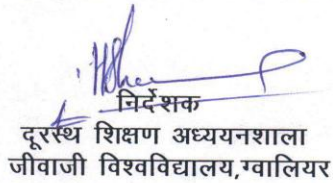 निर्देशक
दूरस्थ शिक्षण अध्ययनशाला
जीवाजी विश्वविद्यालय,ग्वालियर